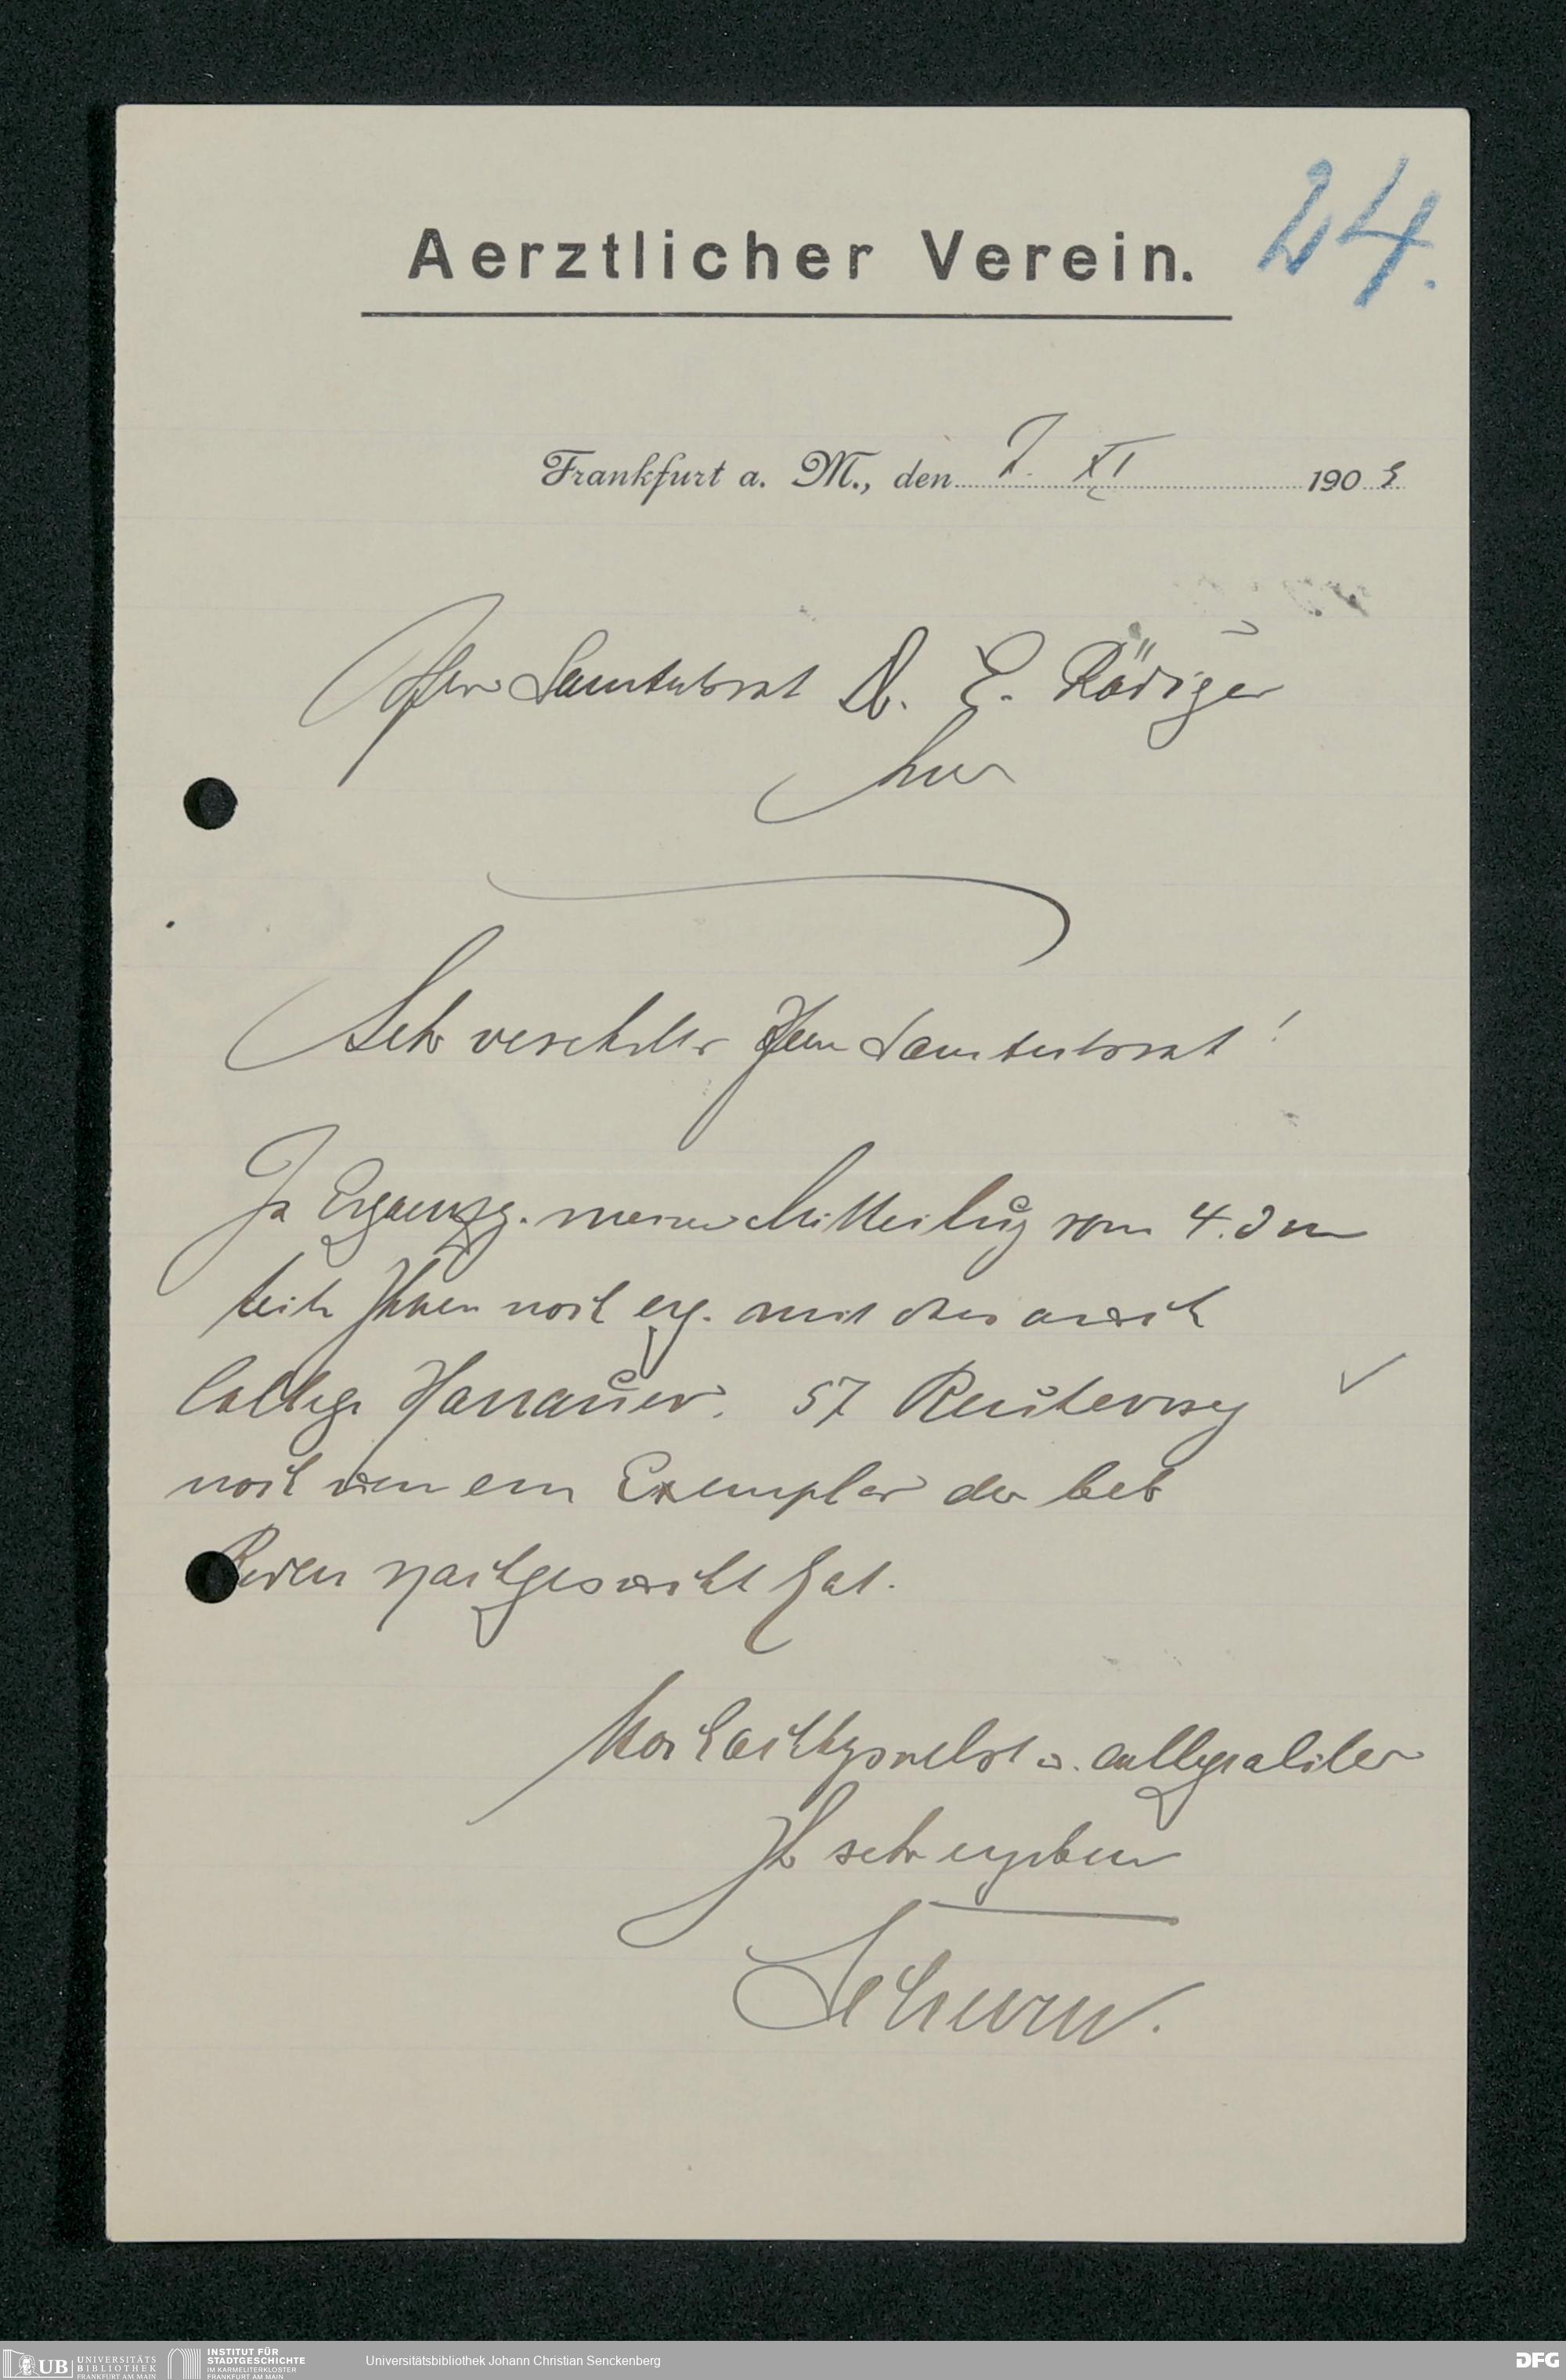 24.
Aerztlicher Verein.
Frankfurt a. M., den 7. XI 1903
Herrn Sanitätsrat Dr. E. Rödiger
hier
Sehr verehrter Herr Sanitätsrat!
In Ergänzg. meiner Mitteilung vom 4. d m
teile Ihnen noch erg. mit dass auch
College Hanauer. 57 Reuterweg
noch um ein Exemplar der
Reden nachgesucht hat.
Hochachtungsvollst u. collegialiter
Ihr sehr ergebener
UB UNIVERSITÄTS
BIBLIOTHEK
FRANKFURT AM MAIN
INSTITUT FÜR
STADTGESCHICHTE
IM KARMELITERKLOSTER
FRANKFURT AM MAIN
Universitätsbibliothek Johann Christian Senckenberg
DFG